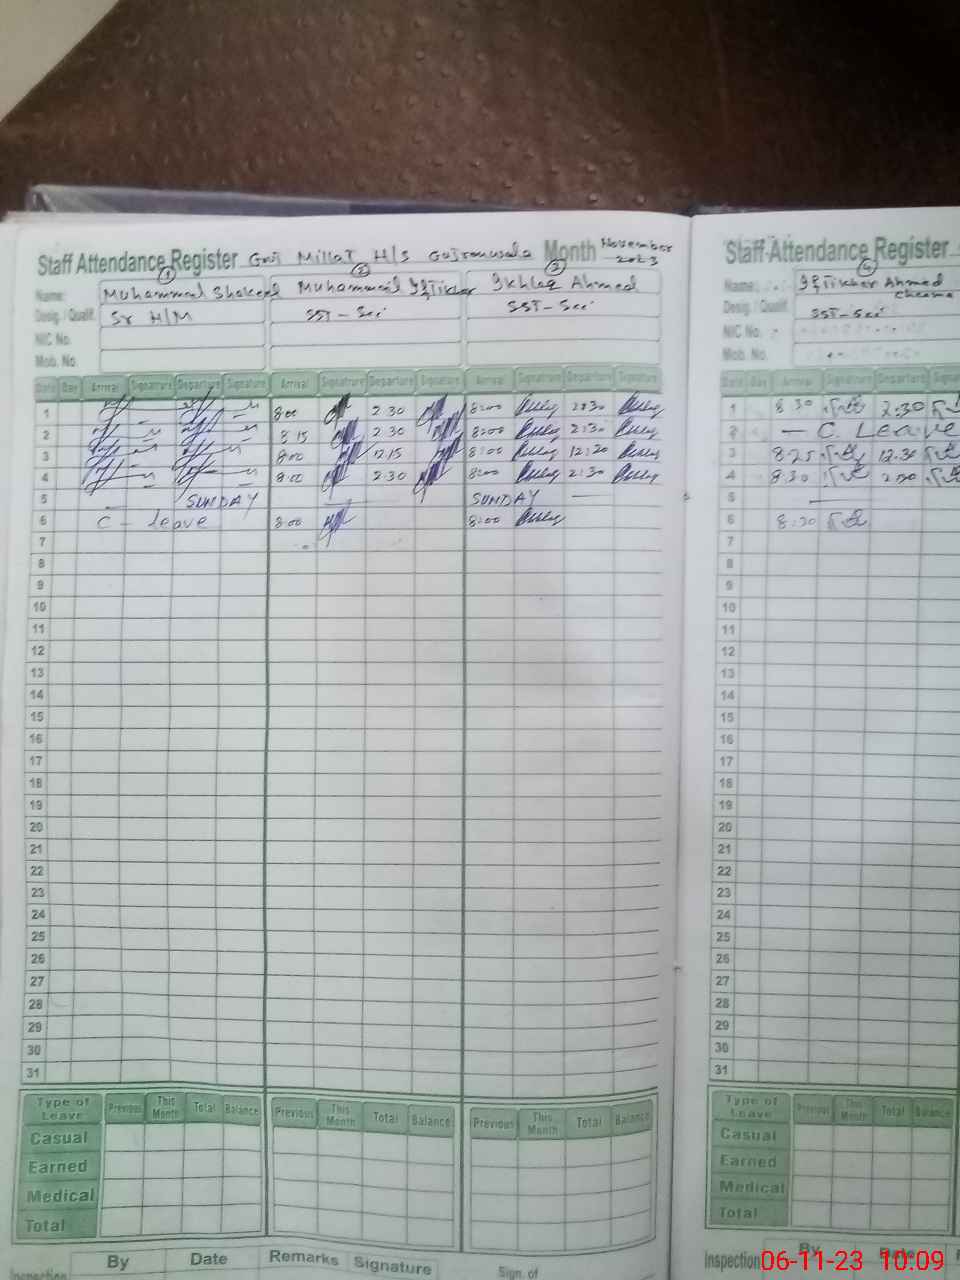 Staff Attendance Register Govt Millat H/S Gujranwala Month November 2023
① ② ③
Name: Muhammad Shakeel Muhammad Iftikhar Ikhlaq Ahmed
Desig. / Qualif. Sr H/M SST - Sci SST - Sci
NIC No.
Mob. No.
Date Day Arrival Signature Departure Signature Arrival Signature Departure Signature Arrival Signature Departure Signature
1 8:00 2:30 8:00 2:30
2 8:15 2:30 8:00 2:30
3 8:00 12:15 8:00 12:20
4 8:00 2:30 8:00 2:30
5 — SUNDAY — SUNDAY —
6 C - leave 8:00 8:00
7
8
9
10
11
12
13
14
15
16
17
18
19
20
21
22
23
24
25
26
27
28
29
30
31
Type of Leave Previous This Month Total Balance Previous This Month Total Balance Previous This Month Total Balance
Casual
Earned
Medical
Total
By Date Remarks Signature
Inspection Sign. of
Staff Attendance Register
④
Name: Iftikhar Ahmed Cheema
Desig. / Qualif. SST - Sci
NIC No.
Mob. No.
Date Day Arrival Signature Departure
1 8:30 2:30
2 — C. Leave
3 8:25 12:30
4 8:30
5 —
6 8:30
7
8
9
10
11
12
13
14
15
16
17
18
19
20
21
22
23
24
25
26
27
28
29
30
31
Type of Leave Previous This Month Total Balance
Casual
Earned
Medical
Total
By Date
Inspection
06-11-23 10:09